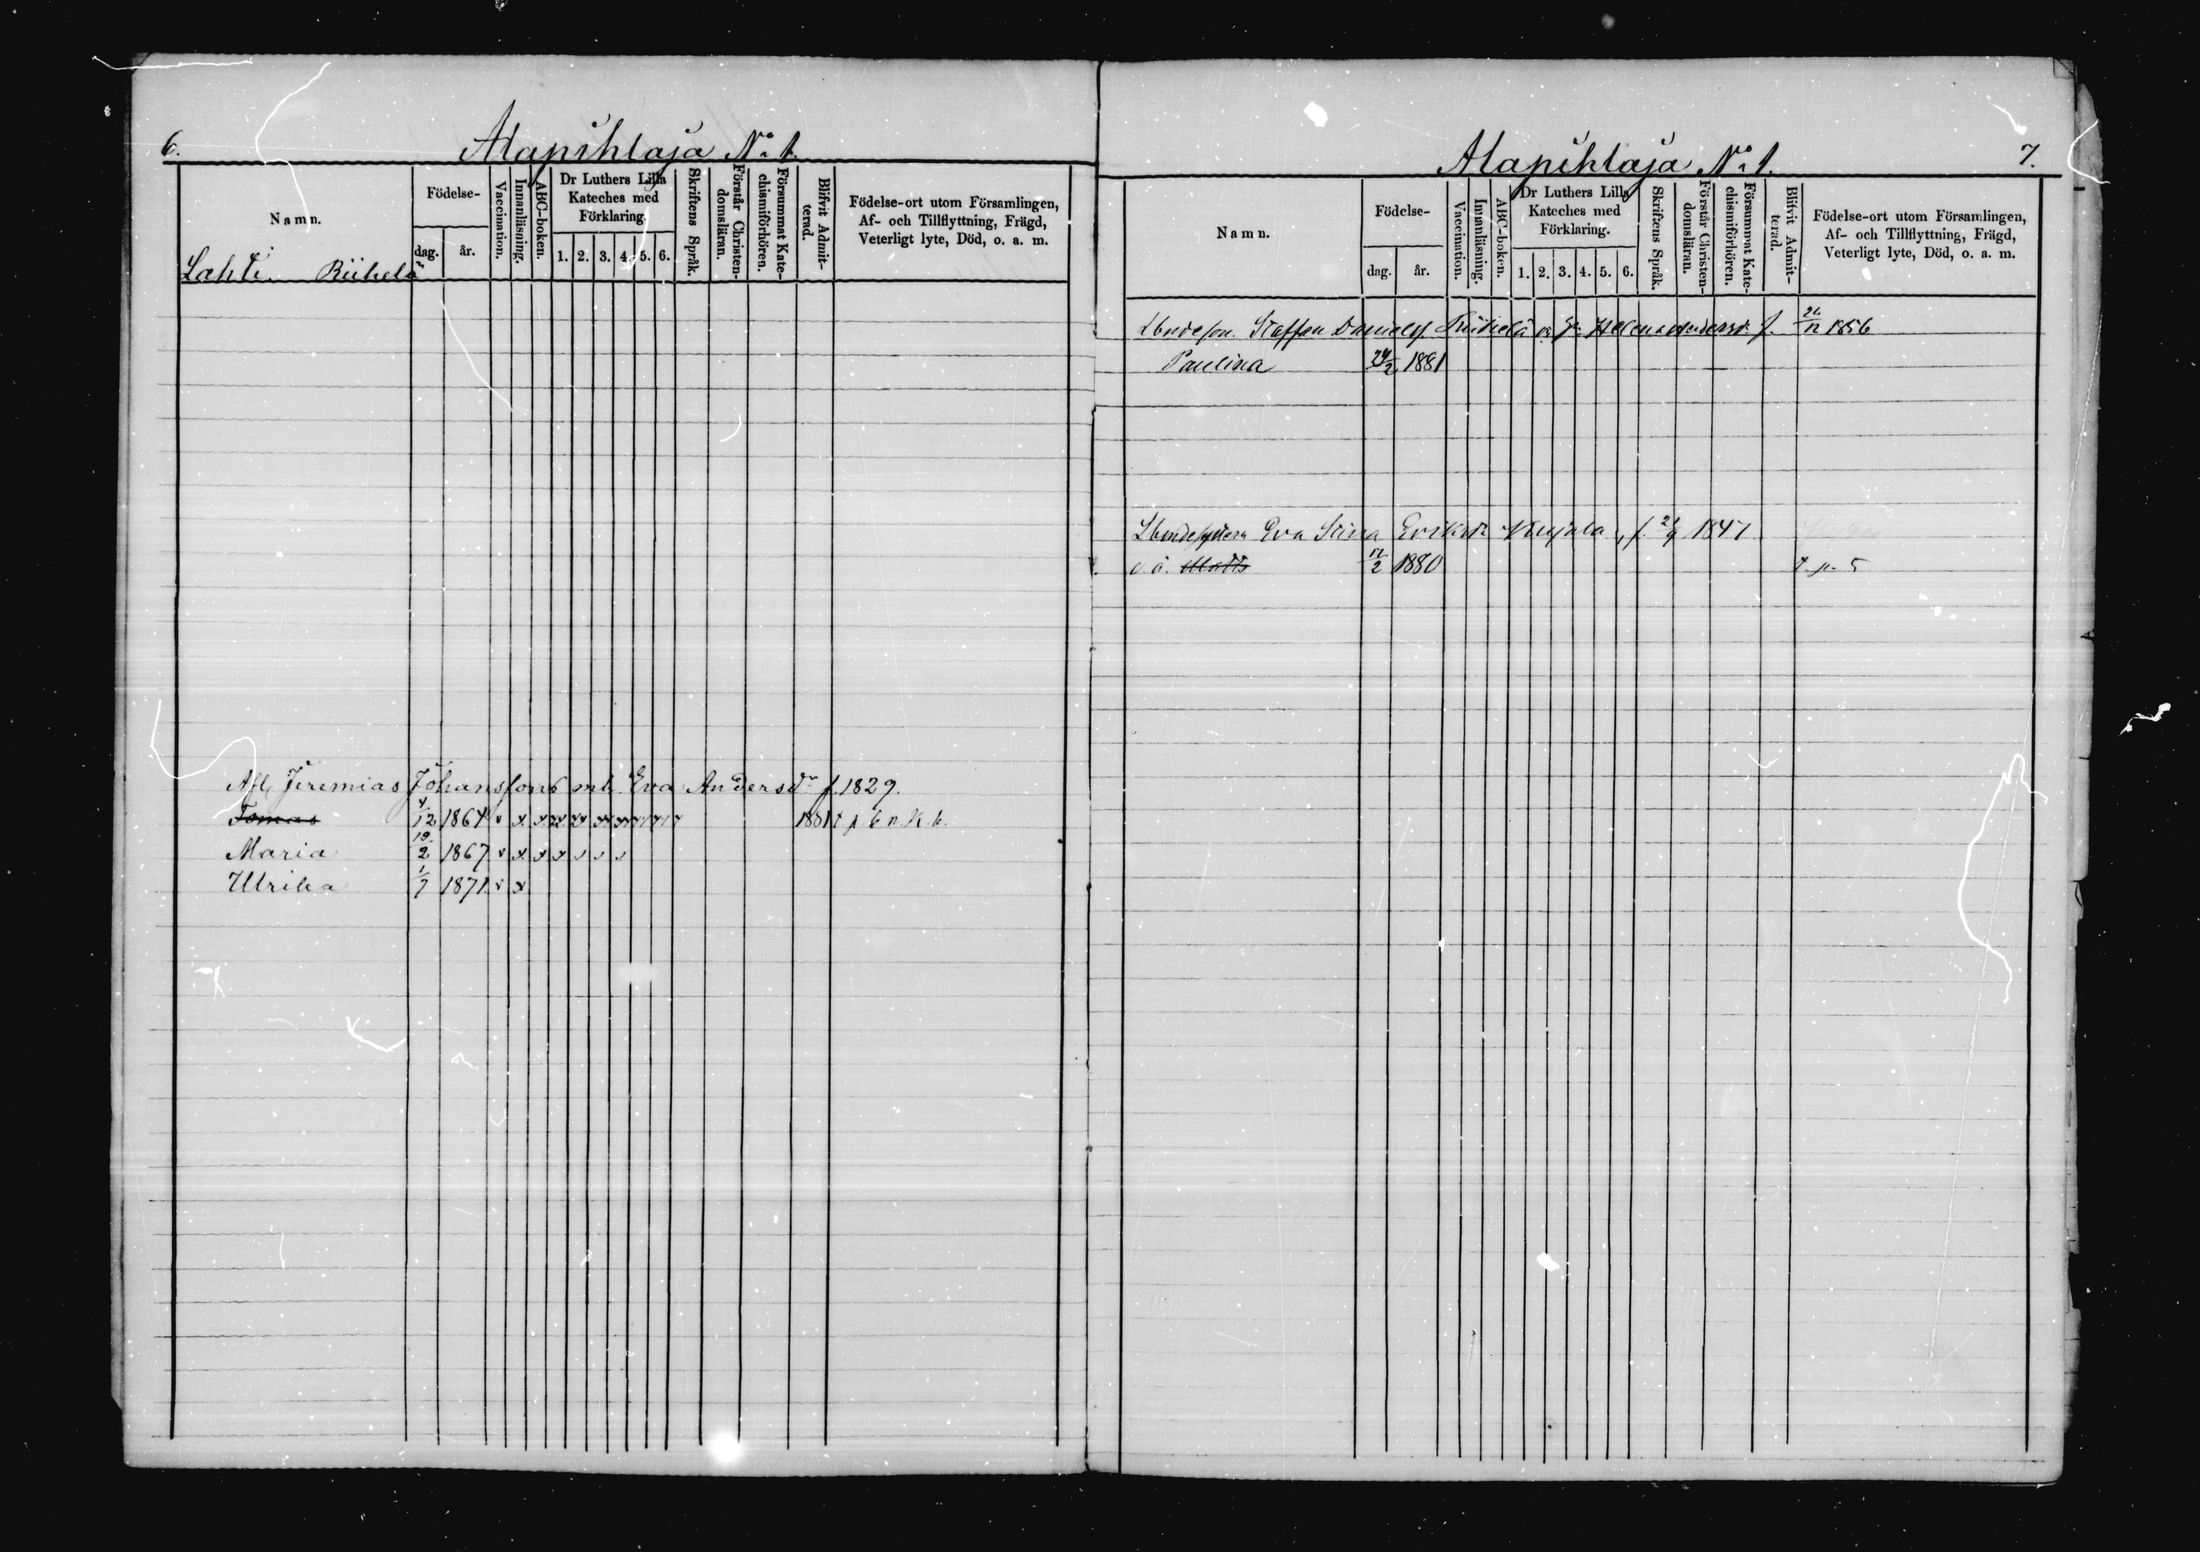 6.
Alapihlaja No 1.
Namn.
Födelse-
dag.
år.
Vaccination.
Innanläsning.
ABC-boken.
Dr Luthers Lilla
Kateches med
Förklaring.
1. 2. 3. 4. 5. 6.
Skriftens Språk.
Förstår Christen-
domsläran.
Försummat Kate-
chismiförhören.
Blifvit Admit-
terad.
Födelse-ort utom Församlingen,
Af- och Tillflyttning, Frägd,
Veterligt lyte, Död, o. a. m.
Lahti. Riihelä
Jeremias Johanssons enk. Eva Andersdr f. 1829.
Tomas 4/12 1864 v x x 1881 p. 6 n. K. b.
Maria 19/2 1867 v x x x v v v
Ulrika 1/7 1871 v x
Alapihlaja No 1.
7.
Namn.
Födelse-
dag.
år.
Vaccination.
Innanläsning.
ABC-boken.
Dr Luthers Lilla
Kateches med
Förklaring.
1. 2. 3. 4. 5. 6.
Skriftens Språk.
Förstår Christen-
domsläran.
Försummat Kate-
chismiförhören.
Blifvit Admit-
terad.
Födelse-ort utom Församlingen,
Af- och Tillflyttning, Frägd,
Veterligt lyte, Död, o. a. m.
Staffan Danielss. Helena Andersdr f. 1856
Paulina 24/2 1881
Eva Stina Eriksdr f. 21/9 1847
o. ä. Matts 12/2 1880 p. 5